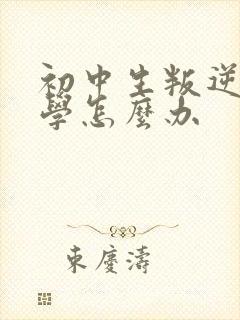 初中生叛逆
學怎麼办
東慶濤